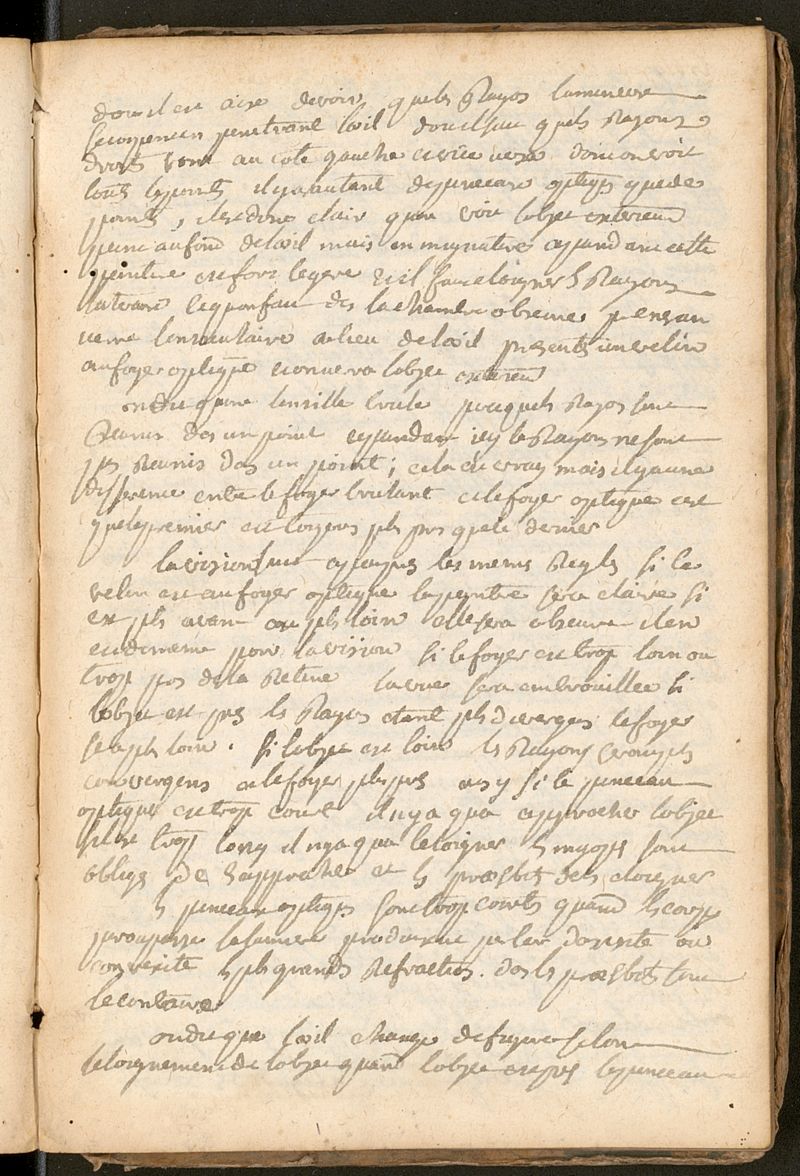 dou il est aisé de voir quels Rayos lumineux
se croysent en penetrant l'oeil dou il suit quels Rayons
droits vont au coté gauche et vice versa donc on voit
tous les points il y a autant de pinceaux optiqs que de
points, il est donc clair quon voit lobjet exterieur
peint au fond de loeil mais en mignature cependant cette
peinture est fort legere et il faut eloigner ls Rayons
lateraux ce quon fait ds la chambre obscure prenons un
verre lenticulaire au lieu de loeil presentés un velin
au foyer optique et on verra lobjet exterieur
on dit quune lentille brule parcequels Rayos sont
Reunis ds un point cependant icy ls Rayons ne sont
pas Reunis ds un point; cela est vray mais il y a une
difference entre le foyer brulant et le foyer optique cest
quele premier est toujours pls prs quele dernier
la vision suit apeuprès les memes Regls si le
velin est au foyer optique la peintre sera claire si
est pls avant ou pls loin elle sera obscure il en
est de meme pour la vision si le foyer est trop loin ou
trop prs de la Retine la vue sera embrouillée si
lobjet est près ls Rayos etant pls divergens le foyer
sera pls loin. si lobjet est loin ls Rayons seront pls
convergens et le foyer pls près ainsy si le pinceau
optique est trop court il ny a qua approcher lobjet
sil est trop long il ny a qua leloigner ls myops sont
obligs de sapprocher et ls presbits de s eloigner
ls pinceaux optiqs sont trop courts quand ls corps
par ou passe la lumiere produisent par leur densité ou
convexité ls pls grands Refractios. ds ls presbits tout
le contraire
on dit que loeil change de figure selon
leloignement de lobjet quand lobjet est près les pinceau